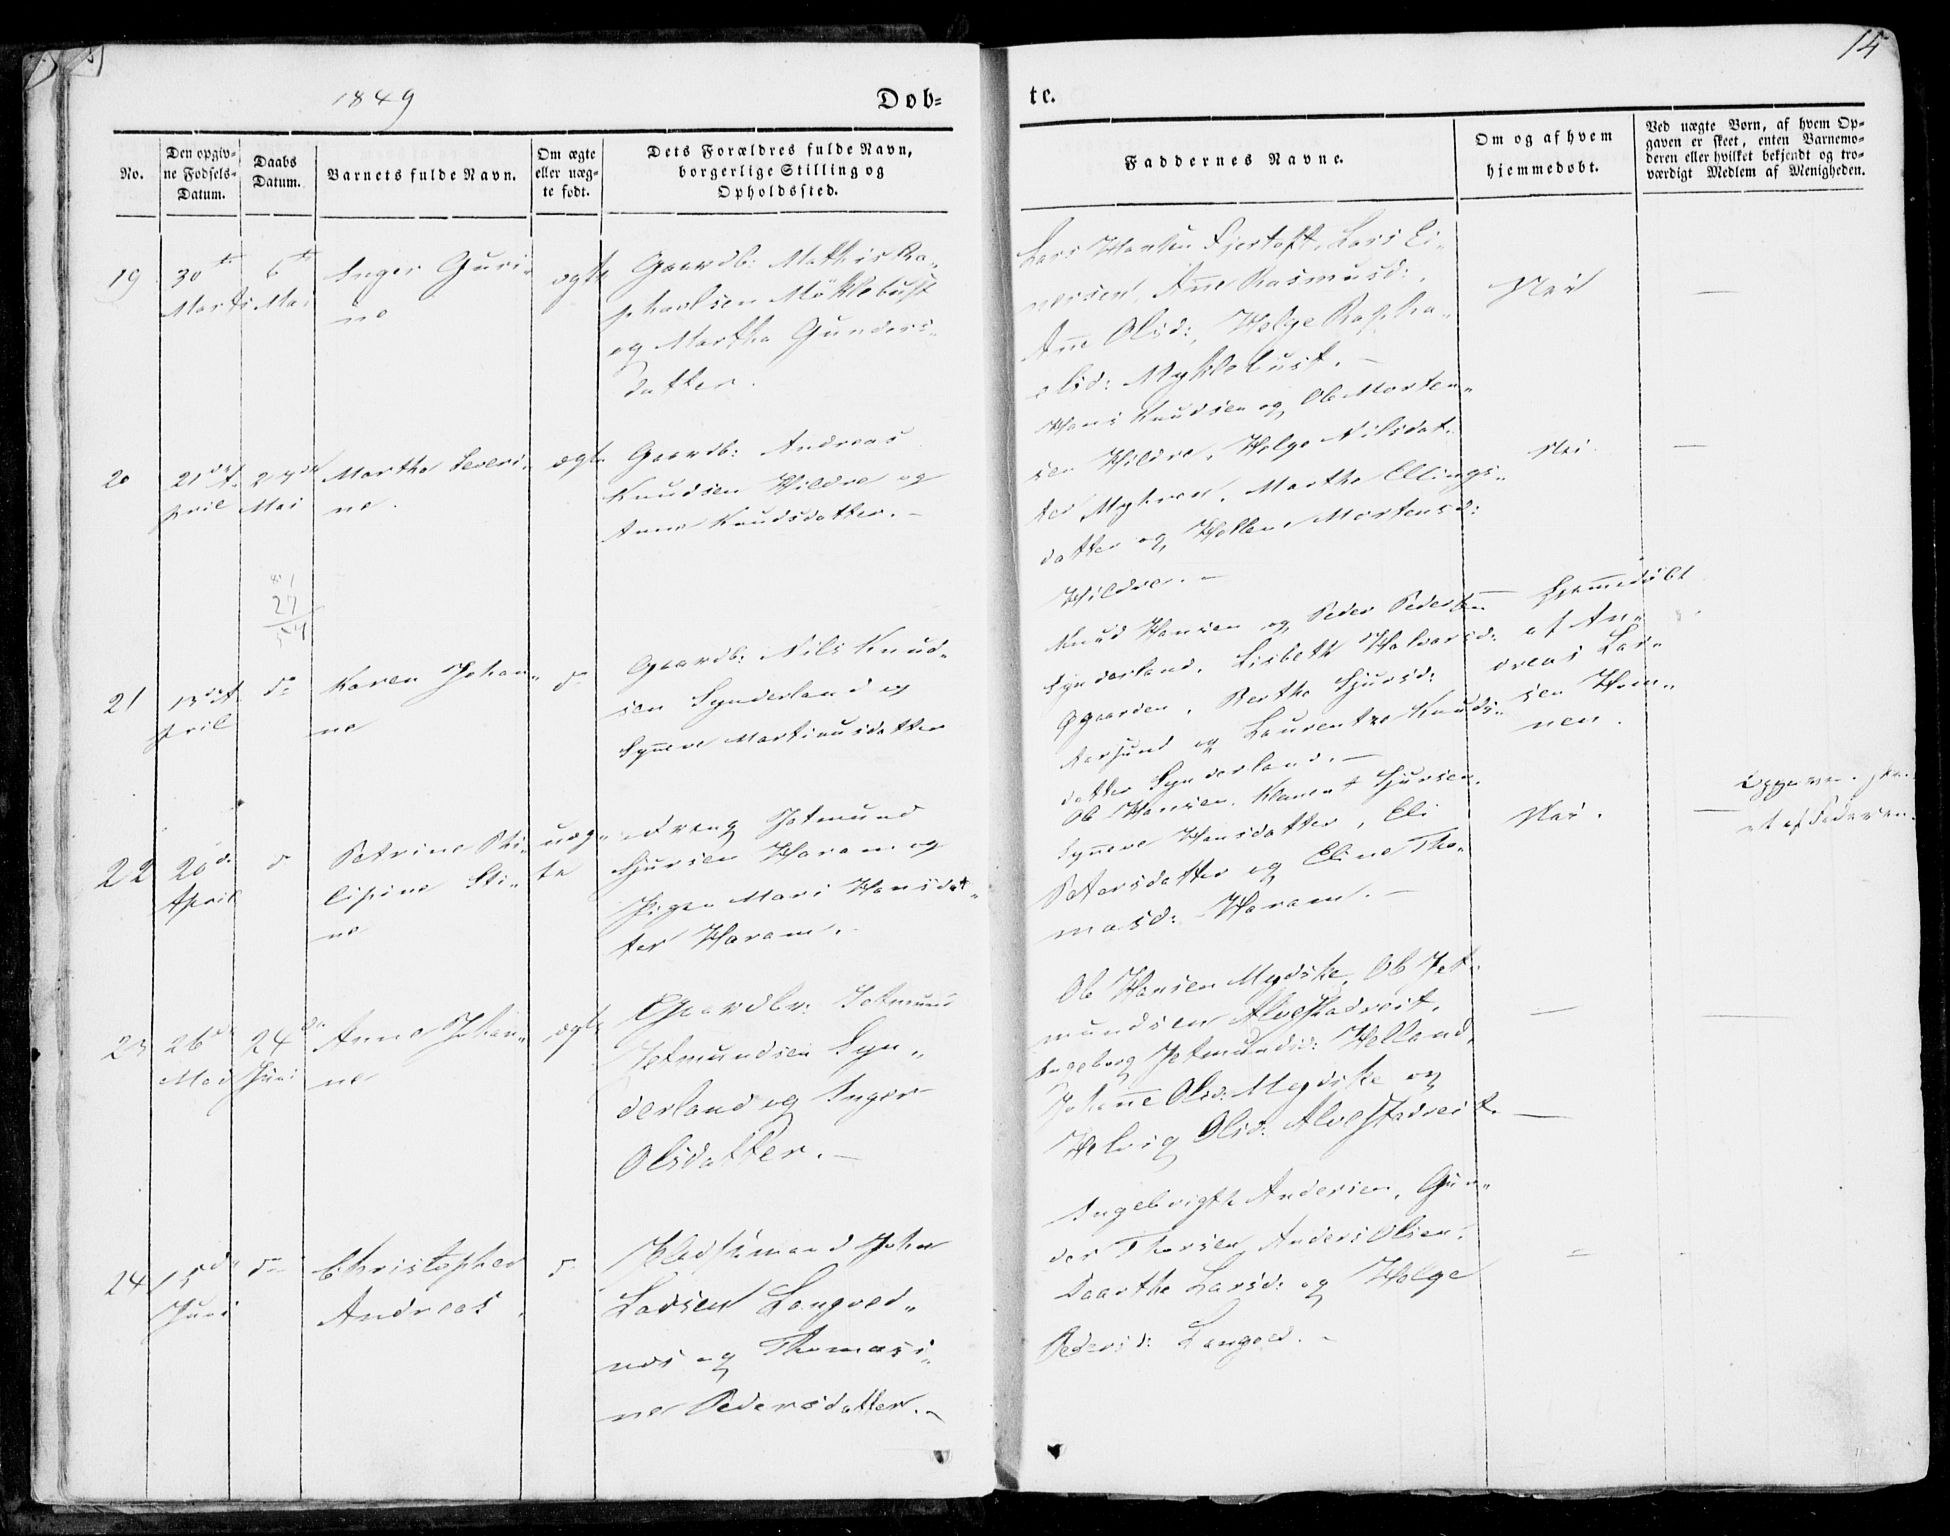 15
1849
Døb=
te.
No.
Den opgiv=
ne Fødsels=
Datum.
Daabs
Datum.
Barnets fulde Navn.
Om ægte
eller uæg=
te født.
Dets Forældres fulde Navn,
borgerlige Stilling og
Opholdssted.
Faddernes Navne.
Om og af hvem
hjemmedøbt.
Ved uægte Børn, af hvem Op=
gaven er skeet, enten Barnemo=
deren eller hvilket bekjendt og tro=
værdigt Medlem af Menigheden.
19
30te
Marts
6te
Mai
Inger Guri-
ne
ægte
Gaardb: Mathis Ra-
phaelsen Möklebust
og Martha Gunders-
datter.
Lars Hansen Fjertoft, Lars Ei-
nersen, Ane Rasmusd:,
Ane Olsd:, Helge Rapha-
elsd: Myklebust. —
Nei
—
20
21de A-
pril
27de
Mai
Martha Severi-
ne.
ægte
Gaardb: Andreas
Knudsen Hildre og
Anne Knudsdatter. —
Hans Knudsen og Ole Morten-
sen Hildre, Helge Nilsdat-
ter Myhren, Marthe Ellings-
datter og Hellene Mortensd:
Hildre. —
Nei
—
27
54
21
13de A-
pril
do
Karen Johan-
ne
do
Gaardb: Nils Knud-
sen Synderland og
Synneve Martinusdatter
Knud Hansen og Peder Pedersen
Synderland, Lisbeth Halvorsd:
Ogaarden, Berthe Sjursd:
Aarsund og Laurentze Knuds-
datter Synderland. —
Hjemmedöbt
af An-
dreas Lar-
sen Ham-
nen.
22
20de
April
do
Petrine Phi-
lipine Sti-
ne
uæg-
te
Dreng Jetmund
Sjursen Haram og
Pigen Mari Hansdat-
ter Haram.
Ole Hansen, Klament Sjursen,
Synneve Hansdatter, Eli
Petersdatter og Eline Tho-
masd: Haram. —
Nei.
Opgaven ske-
et af Faderen.
23
26de
Mai
24de
Juni
Anne Johan-
ne
ægte
Gaardbr: Jetmund
Jetmundsen Syn-
derland og Inger
Olsdatter. —
Ole Hansen Mydske, Ole Jet-
mundsen Alvestadveit,
Ingeborg Jetmundsd: Helland,
Johanne Olsd: Mydske og
Helvig Olsd: Alvestadveit.
—
24
15de
Juni
do
Christopher
Andreas.
do
Pladsmand John
Larsen Langved-
næs og Thomasi-
ne Pedersdatter. —
Ingebrigth Andersen, Gun-
der Thorsen, Anders Olsen,
Daarthe Larsd: og Helge
Pedersd: Langved. —